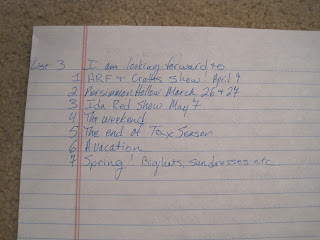 List 3 I am looking forward to
1 ARF & Crafts Show! April 9
2 Persimmon Hollow March 26 & 27
3 Ida Red Show May 7
4 The weekend
5 The end of Tax Season
6 A vacation
7 Spring! Big hats, sundresses etc